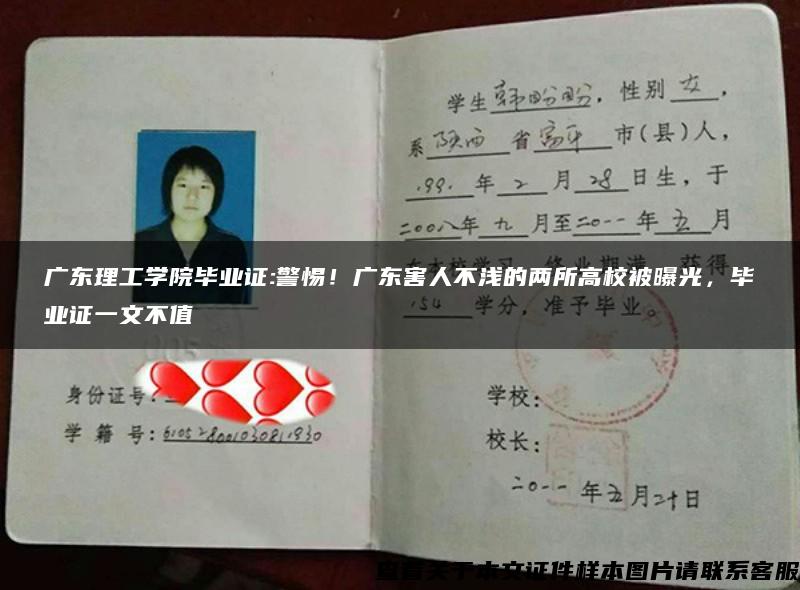 学生韩盼盼，性别女，
系陕西省富平市(县)人，
1991年2月28日生，于
二00八年九月至二0一一年五月
在本校学习，修业期满，获得
154学分，准予毕业。
广东理工学院毕业证:警惕！广东害人不浅的两所高校被曝光，毕
业证一文不值
身份证号:
学籍号:610528001030811930
学校:
校长:
二0一一年五月二十日
查看关于本文证件样本图片请联系客服